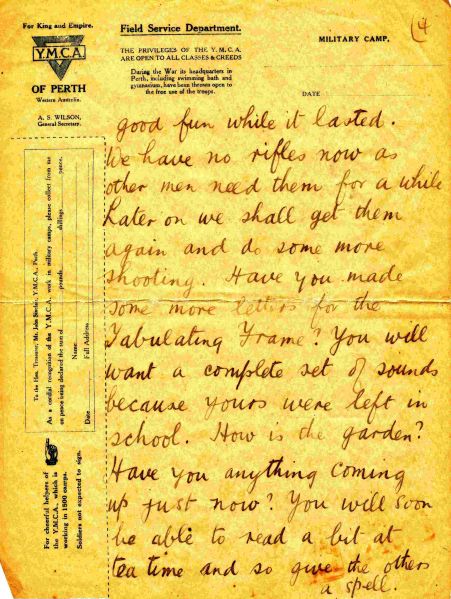 (4
For King and Empire.
Y.M.C.A.
OF PERTH
Western Australia.
A. S. WILSON,
General Secretary.
Field Service Department.
THE PRIVILEGES OF THE Y.M.C.A.
ARE OPEN TO ALL CLASSES & CREEDS
During the War its headquarters in
Perth, including swimming bath and
gymnasium, have been thrown open to
the free use of the troops.
MILITARY CAMP,
DATE
good fun while it lasted.
We have no rifles now as
other men need them for a while
Later on we shall get them
again and do some more
shooting. Have you made
some more letters for the
Tabulating Frame? You will
want a complete set of sounds
because yours were left in
school. How is the garden?
Have you anything coming
up just now? You will soon
be able to read a bit at
tea time and so give the others
a spell.
To the Hon. Treasurer, Mr. John Sinclair, Y.M.C.A., Perth.
As a cordial recognition of the Y.M.C.A. work in military camps, please collect from me
on peace being declared the sum of pounds shillings pence.
Name
Date Full Address
For cheerful helpers of
the Y.M.C.A. which is
working in 1500 camps.
Soldiers not expected to sign.